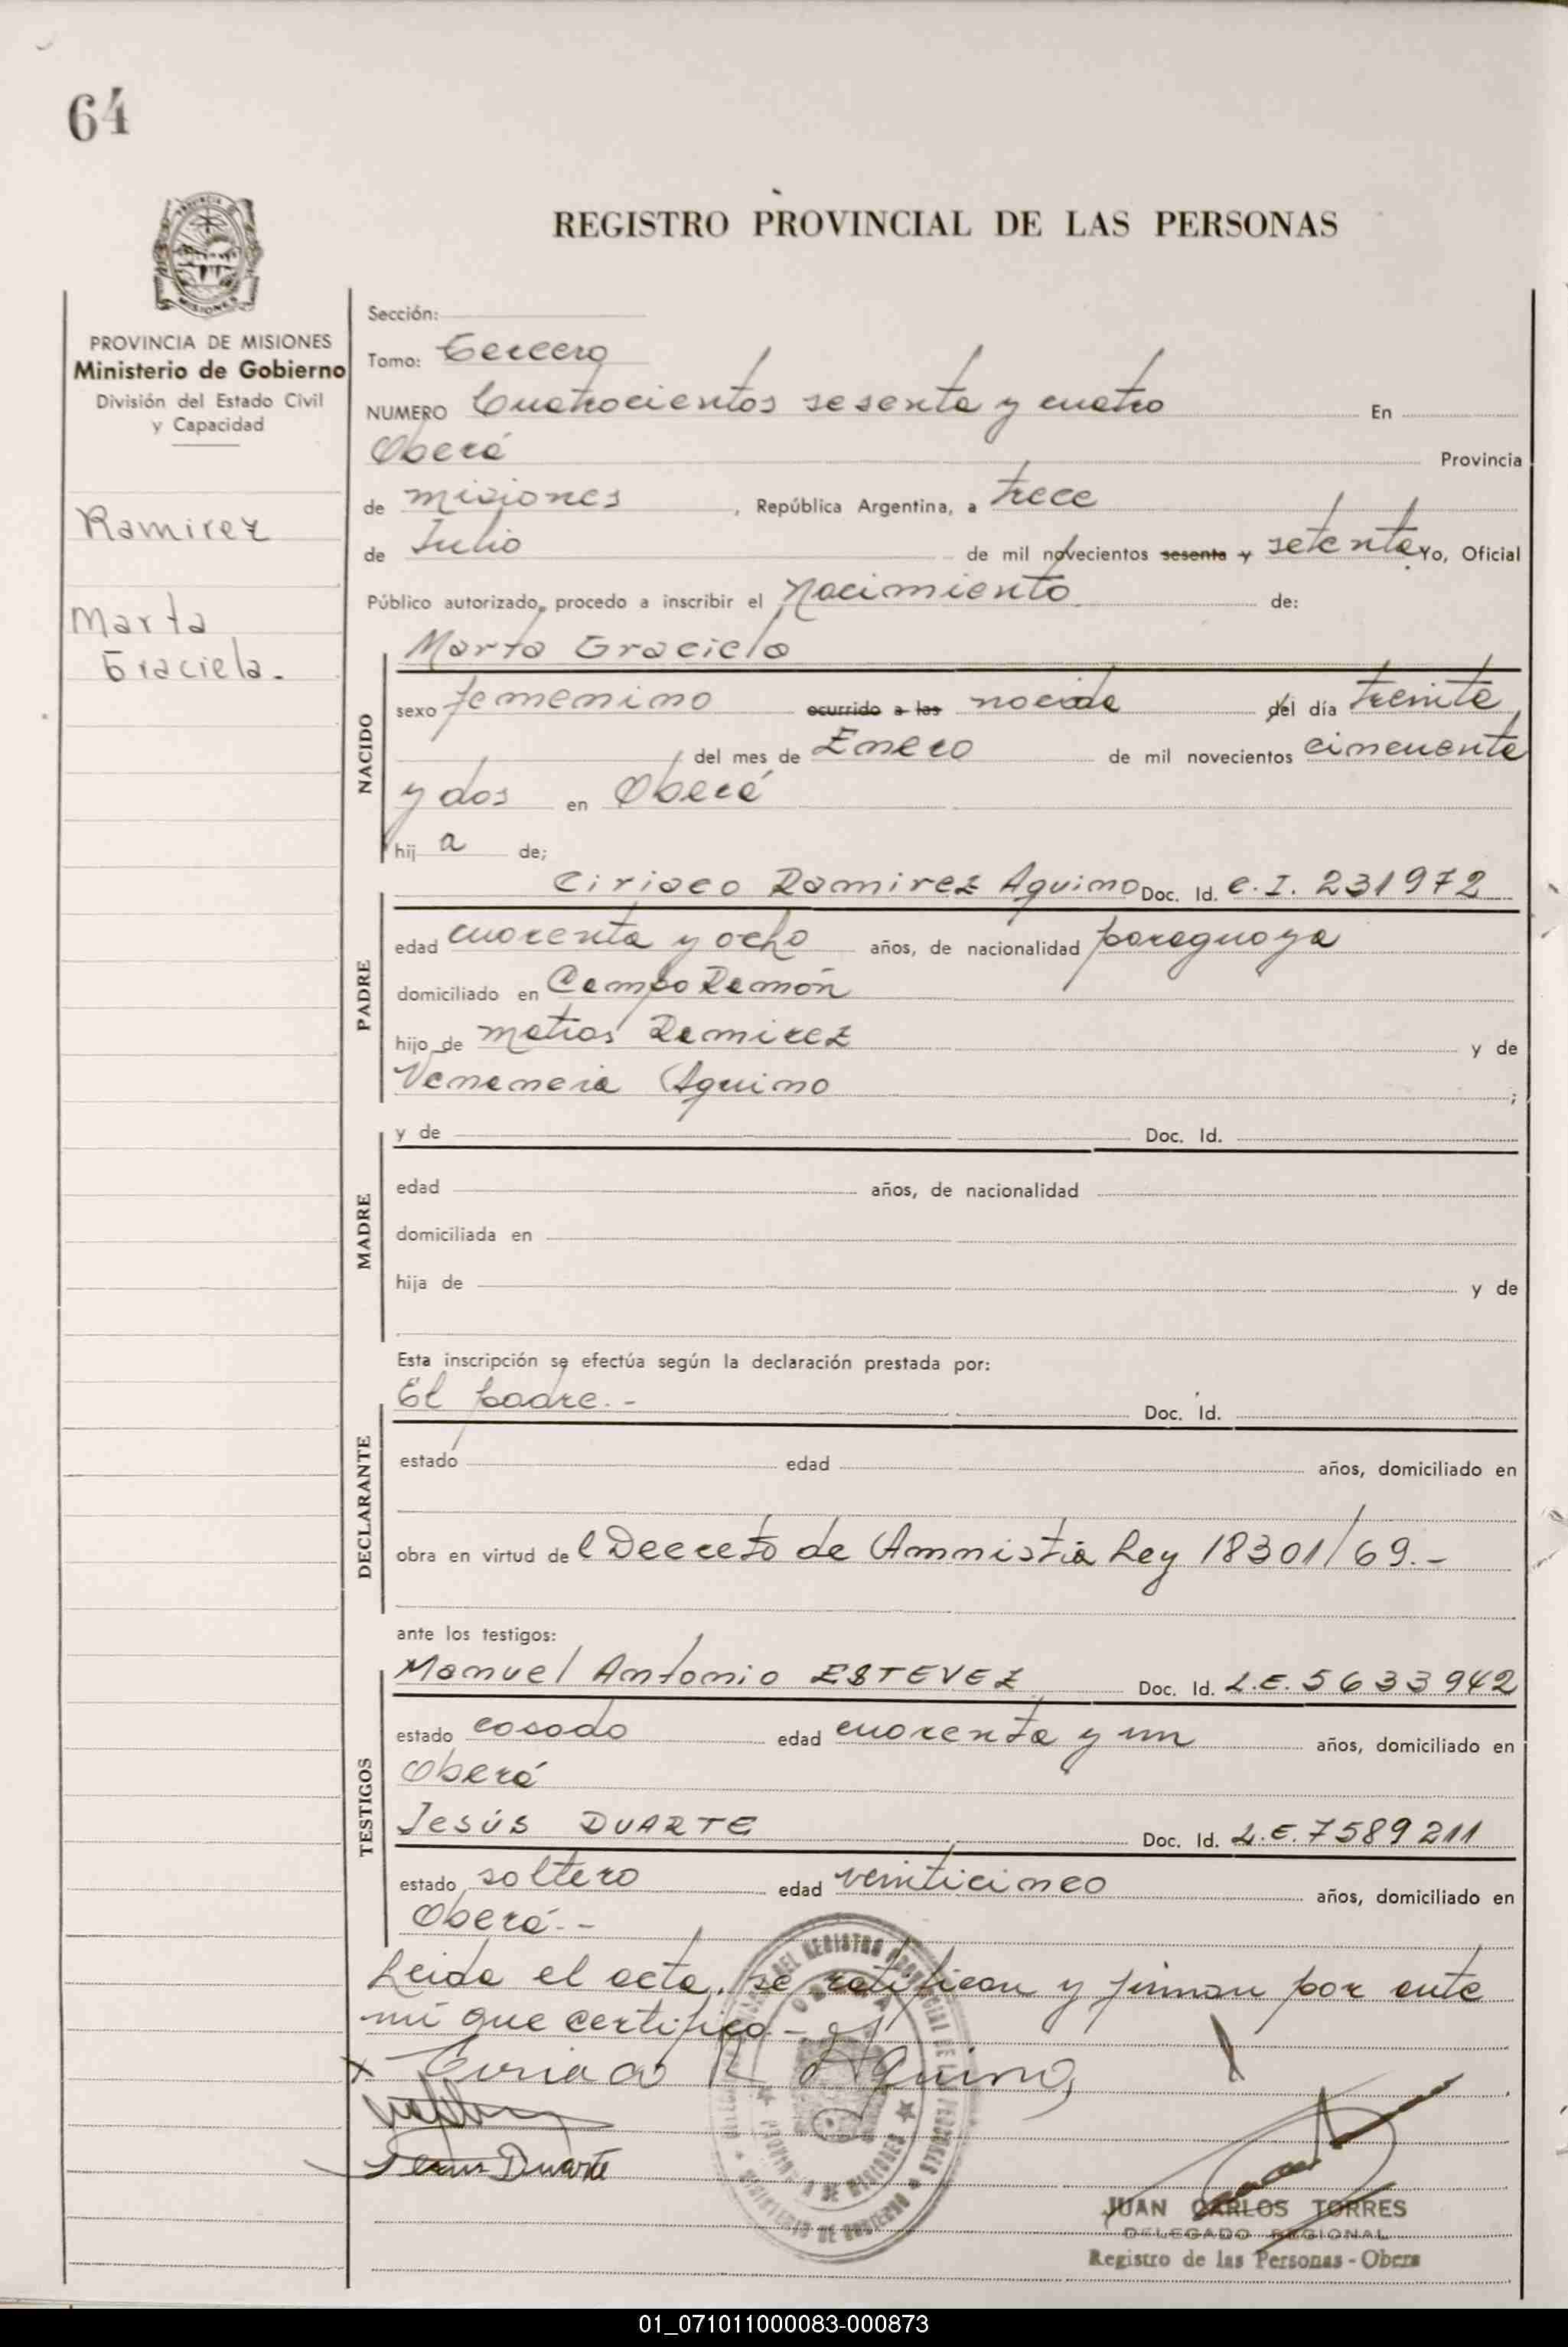 64
REGISTRO PROVINCIAL DE LAS PERSONAS
MISIONES
PROVINCIA DE MISIONES
Ministerio de Gobierno
División del Estado Civil
y Capacidad
Ramirez
Marta
Graciela.
Sección:
Tomo: Tercero
NUMERO Cuatrocientos sesenta y cuatro En
Oberá Provincia
de misiones, República Argentina, a trece
de Julio de mil novecientos sesenta y setenta. Yo, Oficial
Público autorizado, procedo a inscribir el Nacimiento de:
Marta Graciela
NACIDO
sexo femenino ocurrido a las nacida del día treinta
del mes de Enero de mil novecientos cincuenta
y dos en Oberá
hij a de;
Ciriaco Ramirez Aquino Doc. Id. C.I. 231972
PADRE
edad cuarenta y ocho años, de nacionalidad paraguaya
domiciliado en Campo Ramón
hijo de Matias Ramirez y de
Venancia Aquino ;
MADRE
y de Doc. Id.
edad años, de nacionalidad
domiciliada en
hija de y de
Esta inscripción se efectúa según la declaración prestada por:
El padre.-
Doc. Id.
DECLARANTE
estado edad años, domiciliado en
obra en virtud de l Decreto de Amnistia Ley 18301/69.-
ante los testigos:
Manuel Antonio ESTEVEZ Doc. Id. L.E. 5633942
TESTIGOS
estado casado edad cuarenta y un años, domiciliado en
Oberá
Jesús DUARTE Doc. Id. L.E. 7589211
estado soltero edad veinticinco años, domiciliado en
Oberá.-
Leida el acta, se ratifican y firman por ante
mi que certifico.-
x Ciriaco R Aquino
Jesus Duarte
JUAN CARLOS TORRES
DELEGADO REGIONAL
Registro de las Personas - Obera
01_071011000083-000873